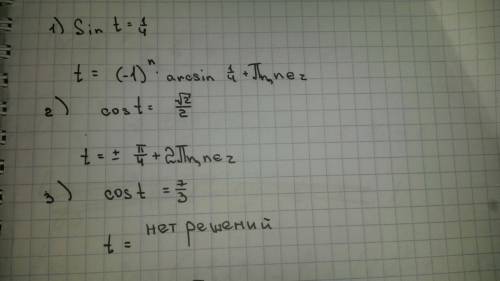 1) Sin t = 1/4
t = (-1)^n · arcsin 1/4 + πn, n∈z
2) cos t = √2/2
t = ± π/4 + 2πn, n∈z
3) cos t = 7/3
t = нет решений